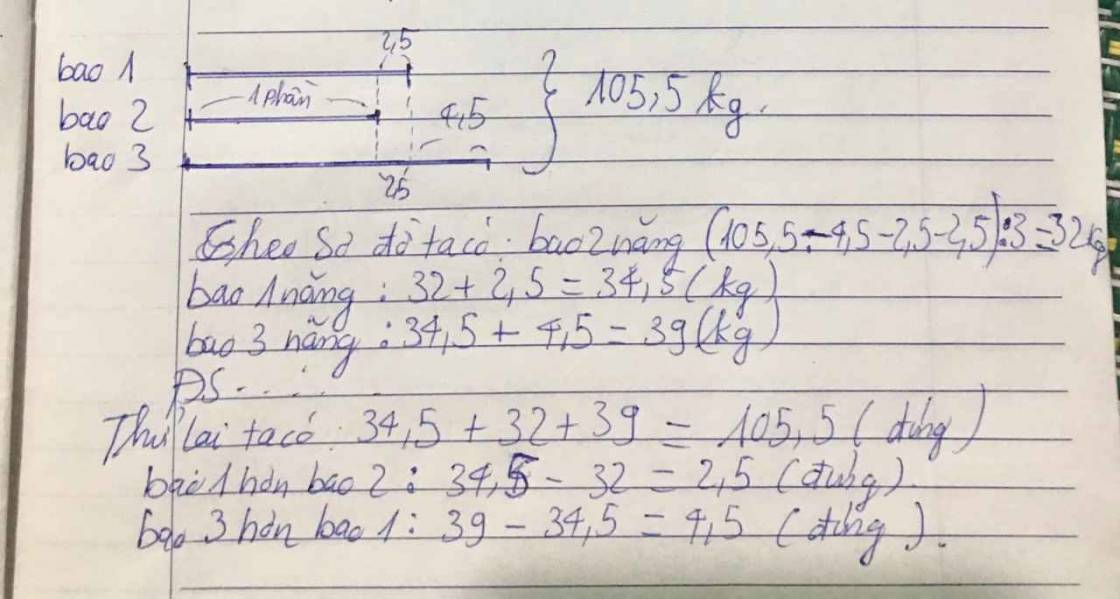 2,5
bao 1
1 phần
105,5 kg.
bao 2
4,5
bao 3
2,5
Theo Sơ đồ ta có: bao 2 nặng (105,5-4,5-2,5-2,5):3=32kg
bao 1 nặng : 32 + 2,5 = 34,5 (kg)
bao 3 nặng : 34,5 + 4,5 = 39 (kg)
ĐS.....
Thử lại ta có: 34,5 + 32 + 39 = 105,5 (đúng)
bao 1 hơn bao 2 : 34,5 - 32 = 2,5 (đúng).
bao 3 hơn bao 1 : 39 - 34,5 = 4,5 (đúng).